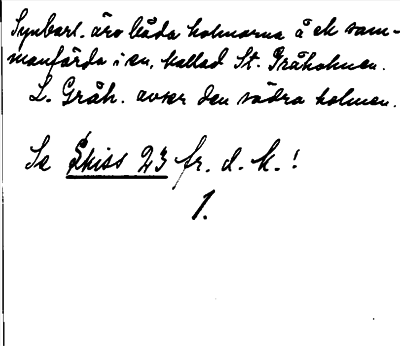 Synbarl. äro båda holmarna å ek sam-
manförda i en, kallad St. Gråholmen.
L. Gråh. avser den södra holmen.
Se Skiss 23 fr. d. k.!
1.